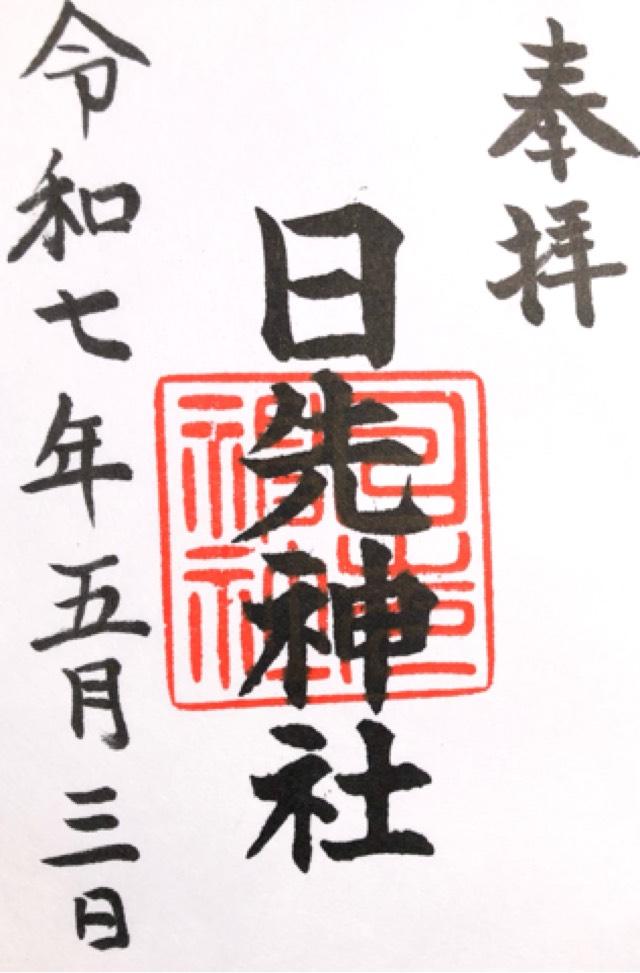 奉拝
日先神社
令和七年五月三日